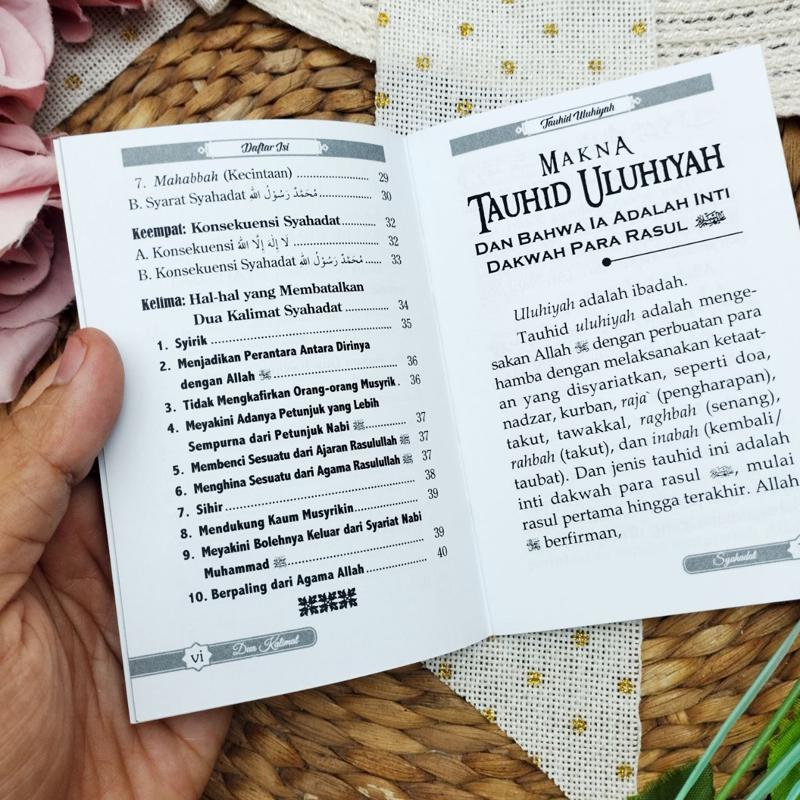 Daftar Isi
7. Mahabbah (Kecintaan) ........................ 29
B. Syarat Syahadat مُحَمَّدٌ رَسُوْلُ اللهِ ................ 30
Keempat: Konsekuensi Syahadat ............ 32
A. Konsekuensi لَا إِلٰهَ إِلَّا اللهُ ........................ 32
B. Konsekuensi Syahadat مُحَمَّدٌ رَسُوْلُ اللهِ ...... 33
Kelima: Hal-hal yang Membatalkan
Dua Kalimat Syahadat .............. 34
1. Syirik .................................................. 35
2. Menjadikan Perantara Antara Dirinya
dengan Allah ﷻ .................................... 36
3. Tidak Mengkafirkan Orang-orang Musyrik . 36
4. Meyakini Adanya Petunjuk yang Lebih
Sempurna dari Petunjuk Nabi ﷺ ............ 37
5. Membenci Sesuatu dari Ajaran Rasulullah ﷺ 37
6. Menghina Sesuatu dari Agama Rasulullah ﷺ 37
7. Sihir .................................................... 38
8. Mendukung Kaum Musyrikin ................ 39
9. Meyakini Bolehnya Keluar dari Syariat Nabi
Muhammad ﷺ .................................... 39
10. Berpaling dari Agama Allah .................. 40
vi
Dua Kalimat
Tauhid Uluhiyah
MAKNA
TAUHID ULUHIYAH
DAN BAHWA IA ADALAH INTI
DAKWAH PARA RASUL
Uluhiyah adalah ibadah.
Tauhid uluhiyah adalah menge-
sakan Allah ﷻ dengan perbuatan para
hamba dengan melaksanakan ketaat-
an yang disyariatkan, seperti doa,
nadzar, kurban, raja` (pengharapan),
takut, tawakkal, raghbah (senang),
rahbah (takut), dan inabah (kembali/
taubat). Dan jenis tauhid ini adalah
inti dakwah para rasul , mulai
rasul pertama hingga terakhir. Allah
ﷻ berfirman,
Syahadat